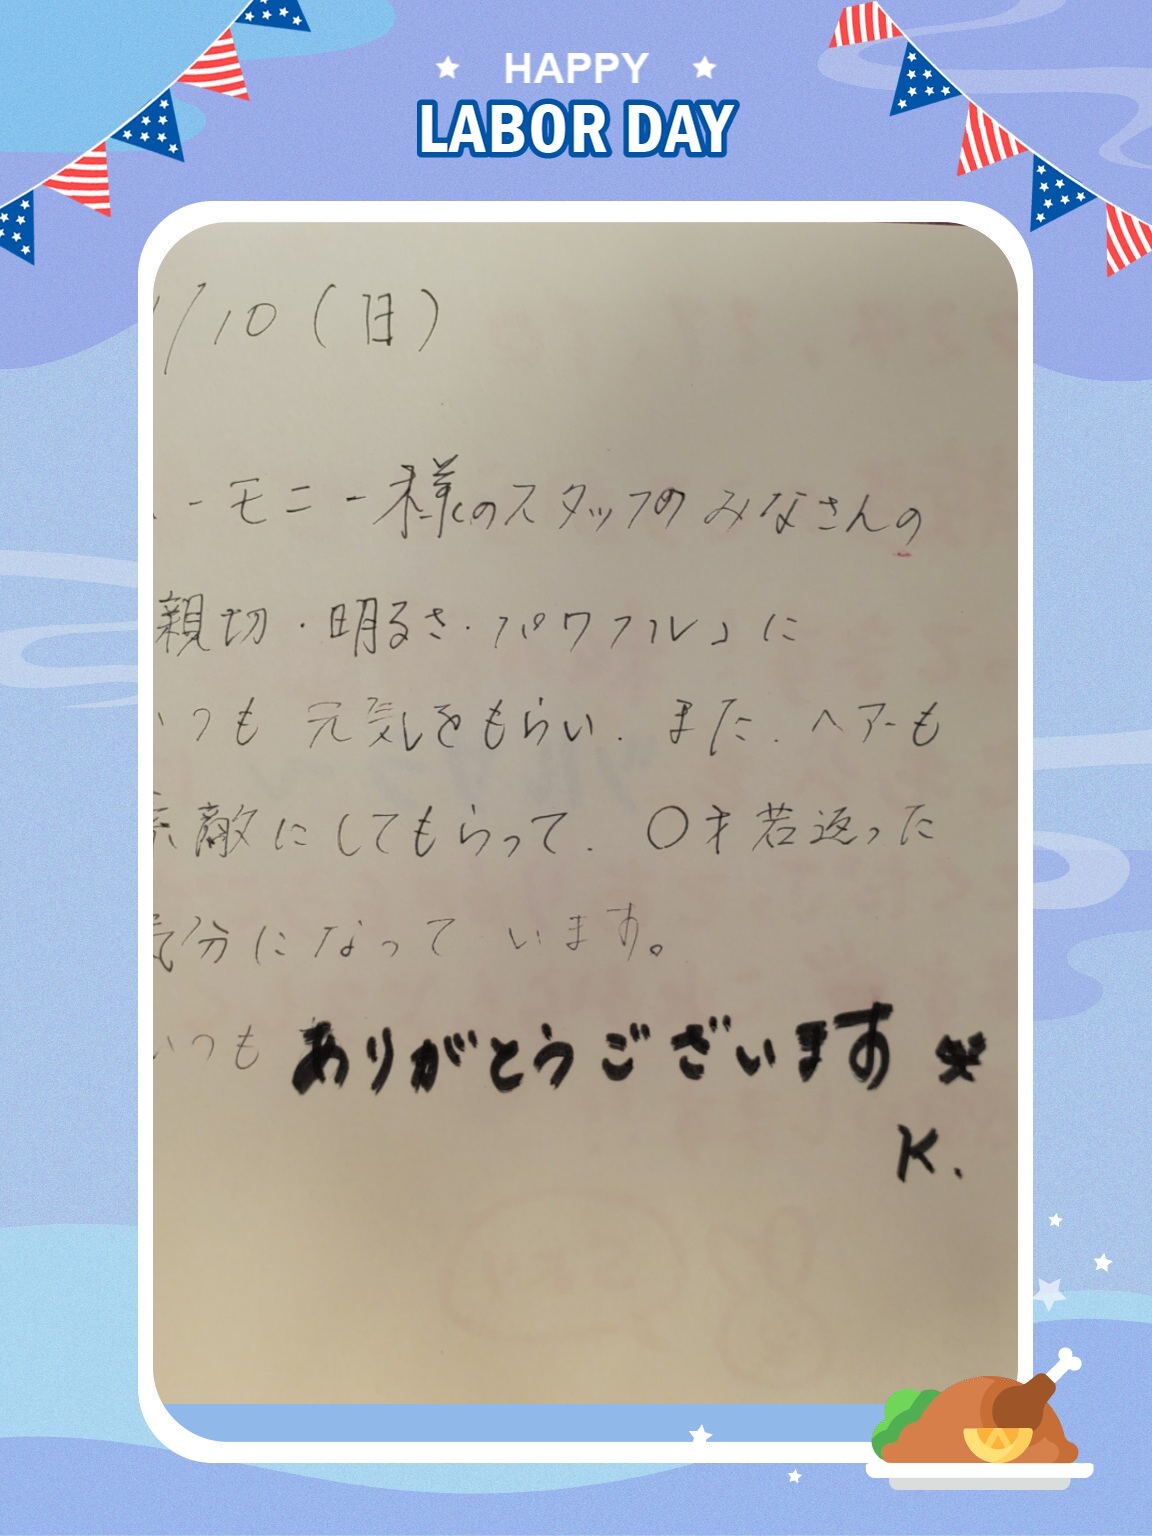 HAPPY
LABOR DAY
/10(日)
ーモニー様のスタッフのみなさんの
親切・明るさ・パワフル」に
いつも 元気をもらい. また. ヘアーも
素敵にしてもらって. 〇才若返った
気分になって います。
いつも ありがとうございます
K.